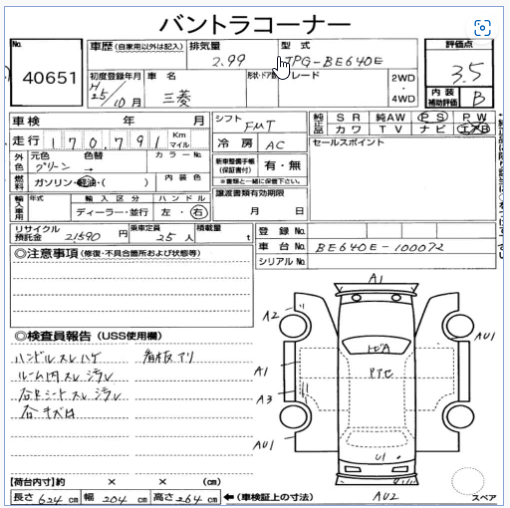 バントラコーナー
No.
40651
車歴 (自家用以外は記入)
排気量
2.99
型式
TPG-BE640E
評価点
3.5
初度登録年月
H/25/10月
車名
三菱
形状・ドア数
グレード
2WD
・
4WD
内装
補助評価
B
車検 年 月
走行 170,791 Km マイル
シフト
FMT
純正品 SR 純AW PS PW
カワ TV ナビ エアB
冷房 AC
セールスポイント
外色 元色 色替 カラーNo.
グリーン →
新車整備手帳
(保証書付)
有・無
※書類と一緒に保管下さい。
燃料 ガソリン・軽油・( )
内装色
譲渡書類有効期限
月 日
輸入車用 年式 輸入区分 ハンドル
ディーラー・並行 左・右
リサイクル
預託金 21590 円
乗車定員 25 人
積載量 t
登録No.
車台No. BE640E-100072
シリアルNo.
◎注意事項 (修復・不具合箇所および状態等)
◎検査員報告 (USS使用欄)
ハンドル スレ ハゲ
看板アリ
ルーム内 スレ 汚レ
右Rシート スレ 汚レ
A1
A2
AU1
A1
A3
AU1
U1
AU2
スペア
【荷台内寸】約 × × (cm)
長さ 624 cm 幅 204 cm 高さ 264 cm ←(車検証上の寸法)